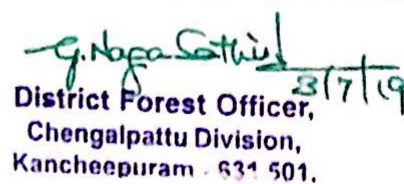 G. Naga Sathish
3/7/19
District Forest Officer,
Chengalpattu Division,
Kancheepuram - 631 501.